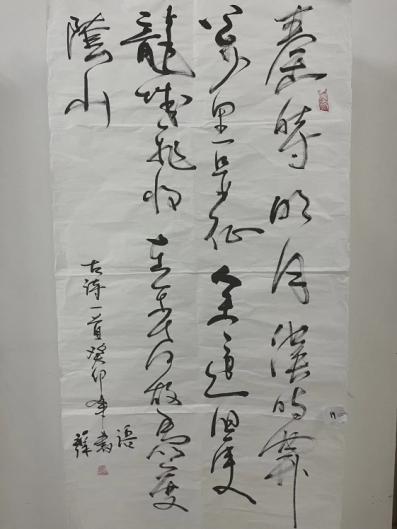 秦時明月漢時關
萬里長征人未還但使
龍城飛将在不教胡馬度
陰山
古詩一首癸卯年